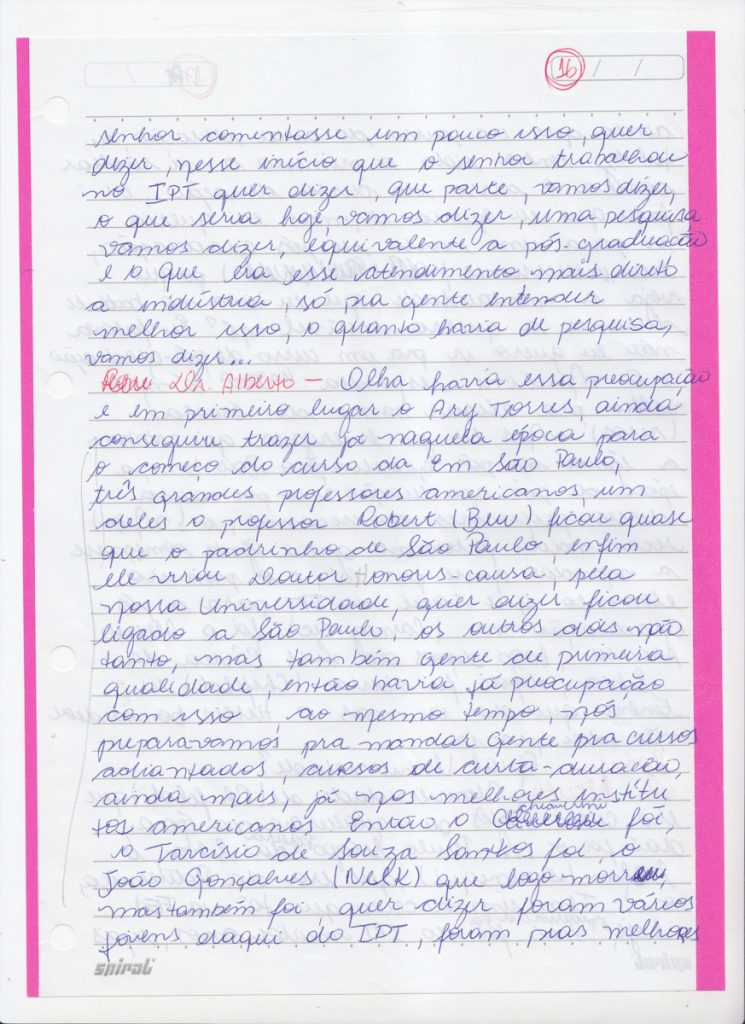 16 / /
senhor comentasse um pouco isso, quer
dizer, nesse início que o senhor trabalhou
no IPT quer dizer, que parte, vamos dizer,
o que seria hoje, vamos dizer, uma pesquisa,
vamos dizer, equivalente a pós-graduação
e o que era esse atendimento mais direto
a indústria, só pra gente entender
melhor isso, o quanto havia de pesquisa,
vamos dizer...
Dr. Alberto — Olha havia essa preocupação
e em primeiro lugar o Ary Torres, ainda
conseguiu trazer já naquela época para
o começo do curso da Em São Paulo,
três grandes professores americanos, um
deles o professor Robert (Bew) ficou quase
que o padrinho de São Paulo, enfim
ele virou Doutor Honoris-causa, pela
nossa Universidade, quer dizer ficou
ligado a São Paulo, os outros dois não
tanto, mas também gente de primeira
qualidade, então havia já preocupação
com isso, ao mesmo tempo, nós
preparavamos pra mandar gente pra cursos
adiantados, cursos de curta-duração,
ainda mais, já nos melhores institu
tos americanos Então o foi,
o Tarcísio de Souza Santos foi, o
João Gonçalves (Nelk) que logo morreu,
mas também foi, quer dizer, foram vários
jovens daqui do IPT, foram pras melhores
spiral